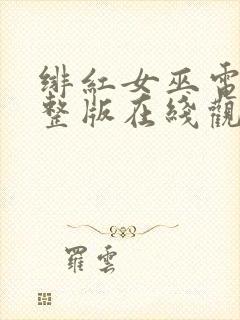 緋紅女巫電
整版在綫觀
羅雲